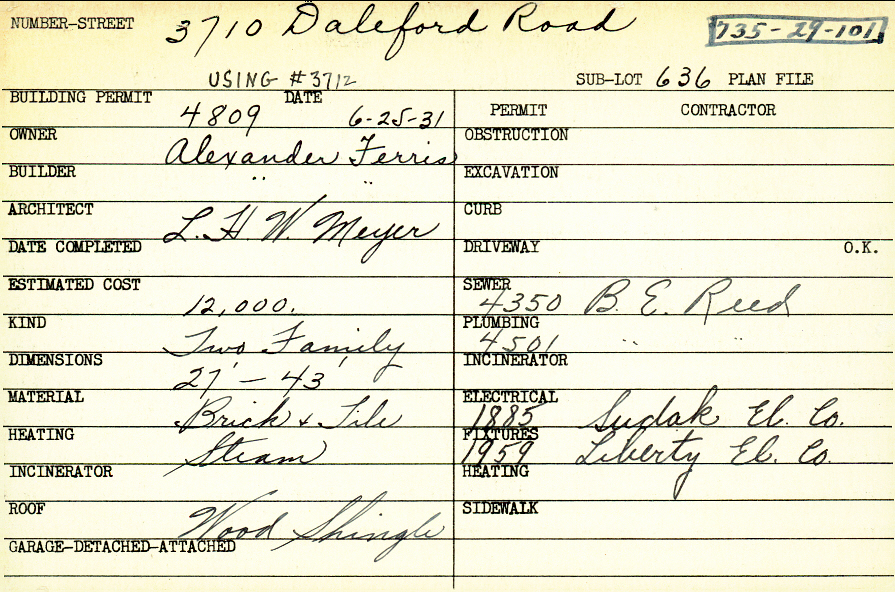 NUMBER-STREET 3710 Daleford Road 735-29-101
USING #3712 SUB-LOT 636 PLAN FILE
BUILDING PERMIT DATE PERMIT CONTRACTOR
4809 6-25-31
OWNER Alexander Ferris OBSTRUCTION
BUILDER " " EXCAVATION
ARCHITECT L. H. W. Meyer CURB
DATE COMPLETED DRIVEWAY O.K.
ESTIMATED COST 12,000. SEWER 4350 B. E. Reed
KIND Two Family PLUMBING 4501 " "
DIMENSIONS 27' - 43' INCINERATOR
MATERIAL Brick & Tile ELECTRICAL 1885 Sudak El. Co.
HEATING Steam FIXTURES 1959 Liberty El. Co.
INCINERATOR HEATING
ROOF Wood Shingle SIDEWALK
GARAGE-DETACHED-ATTACHED